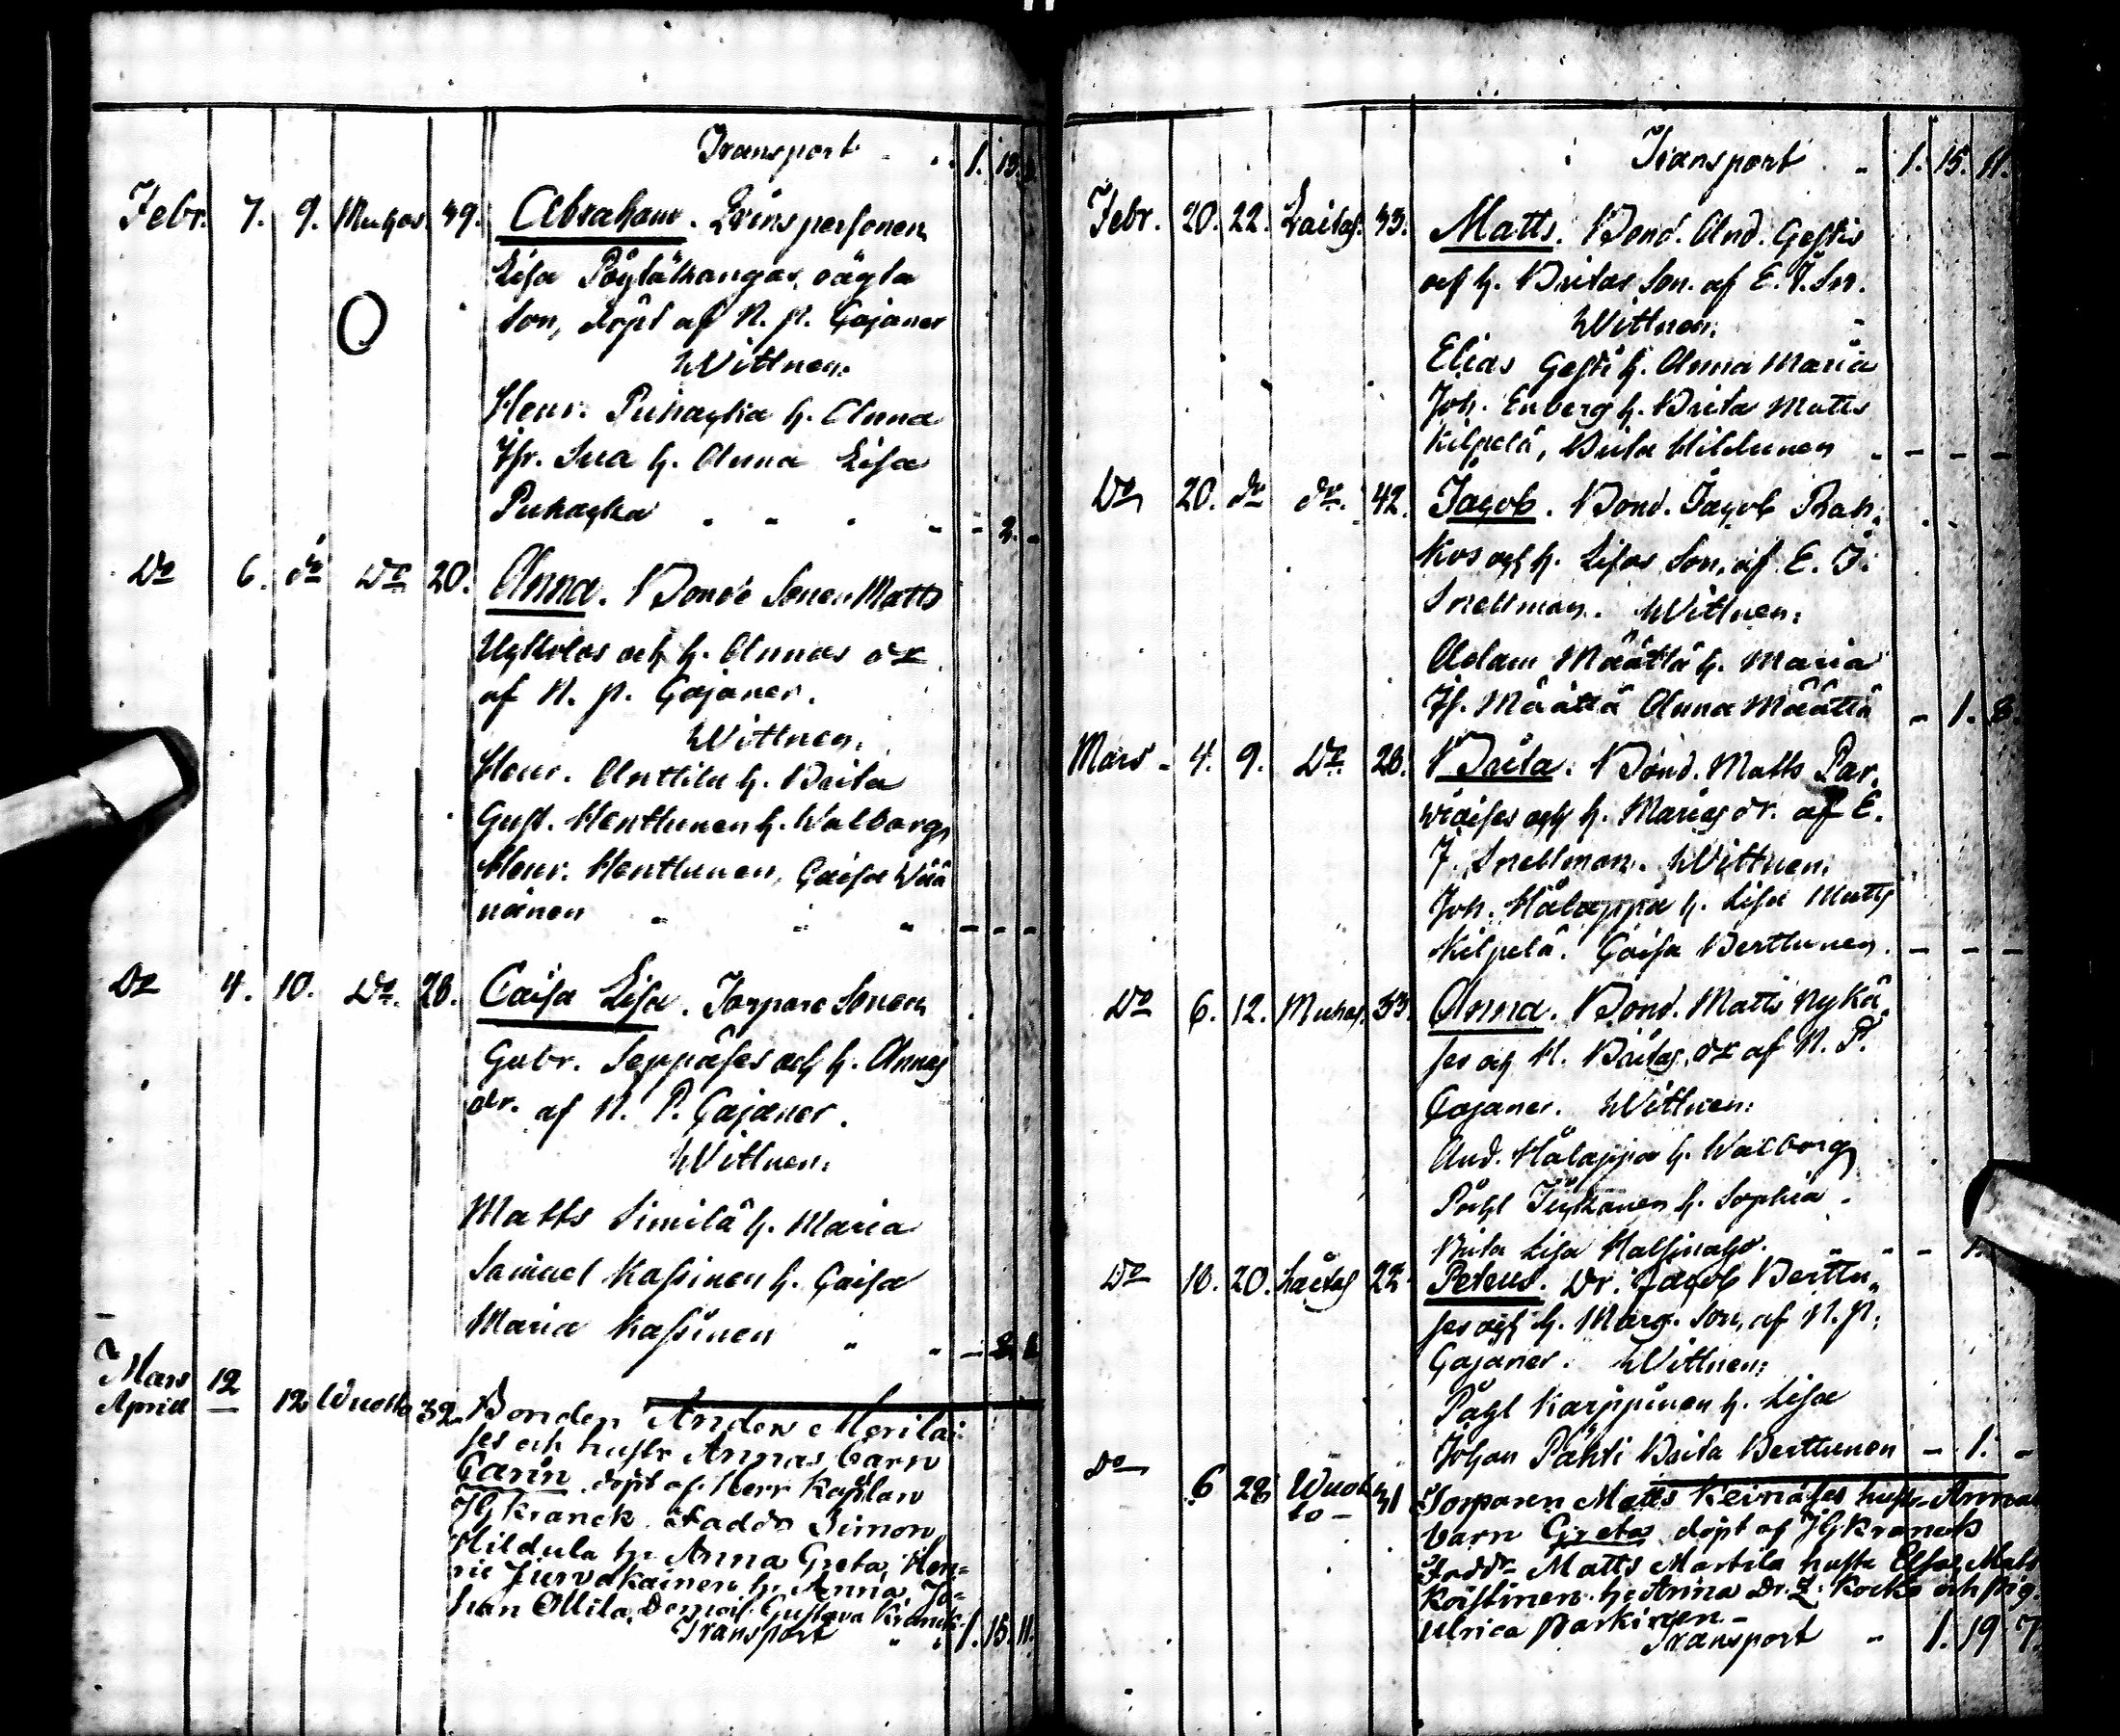 Transport 1. 15.
Febr. 7. 9. Muhos. 39. Abraham. Qvinspersonen
Lisa Pöylätkangas oägta
Son, döpt af N. P. Cajaner
Wittnen.
Henr. Puhakka h. Anna
h. Anna Lisa
Puhakka - 2. -
Do 6. do Do 20. Anna. Bonde Sonen Matts
och h. Annas dr
af N. P. Cajaner.
Wittnen.
Henr. Anttila h. Brita
Gust. Henttunen h. Walborg,
Henr. Henttunen, Caisa Wää
nänen - - -
Do 4. 10. Do. 28. Caisa Lisa. Torpare Sonen
Gabr. Seppäses och h. Annas
dr. af N. P. Cajaner.
Wittnen:
Matts Similä h. Maria
Samuel Kassinen h. Caisa
Maria Kassinen
Mars 12
April — 12 Wuotto 32 Bonden Anders Merilä-
ses och hustr Annas barn
Carin döpt af Herr Kaplan
JG Kranck. Faddr Simon
Mildula hu Anna Greta, Hen-
ric Jurvakainen hu Anna, Jo-
han Ollila, Demois. Gustava Kranck.
Transport 1. 15. 11.
Transport 1. 15. 11.
Febr. 20. 22. Laitas. 33. Matts. Bond. And. Gestis
och h. Britas Son. af E. J. Sn.
Wittnen.
Elias Gesti h. Anna Maria
Joh. Enberg h. Brita Matts
Kilpelä, Brita Hildunen - - - -
Do 20. do do. 42. Jacob. Bond. Jacob Rah-
kos och h. Lisas Son, af E. J.
Snellman. Wittnen:
Adam Määttä h. Maria
Määttä Anna Määttä - 1. 8.
Mars - 4. 9. Do. 28. Brita. Bond. Matts Par-
wiaises och h. Marias dr. af E.
J. Snellman. Wittnen:
Joh. Hålappa h. Lisa Matts
Kilpelä. Caisa Berttunen. - - -
Do 6. 12. Muhos. 33. Anna. Bond. Matts Nykä-
ses och H. Britas, dr af N. P.
Cajaner. Wittnen:
And. Hålappa h. Walborg
Påhl Tyykänen h. Sophia.
Brita Lisa
Do 10. 20. Laitas 22 Petrus. Dr. Jacob Berttu-
ses och h. Marg. Son, af N. P.
Cajaner. Wittnen:
Påhl Karppinen h. Lisa
Johan Pahti Brita Berttunen - 1. -
Do 6 28 Wuot 31 Torparen Matts Keinäses hustr Annas
to - barn Gretas döpt af JG Kranck
Faddr Matts Martila hustr Elsa, Mats
Koistinen hu Anna Dr. Z. Kocko och pig.
Ulrica Parkinen -
Transport 1. 19 7.